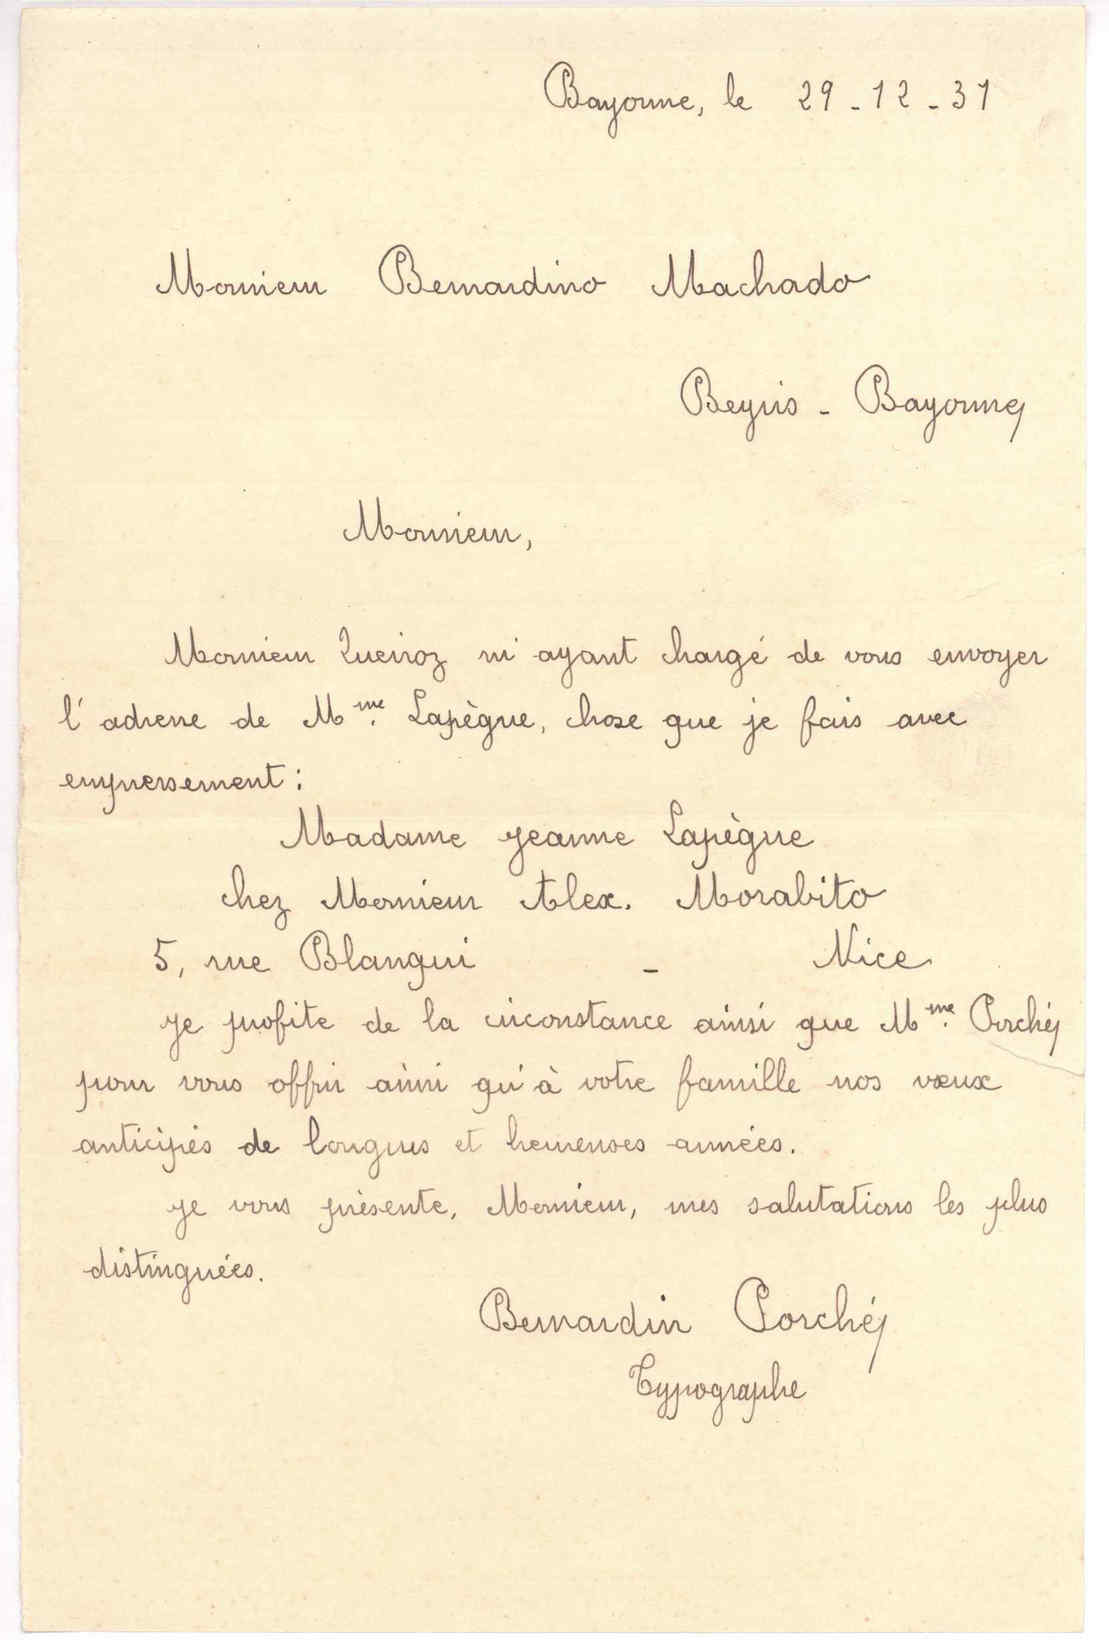 Bayonne, le 29-12-31
Monsieur Bernardino Machado
Beyris - Bayonne
Monsieur,
Monsieur Queiroz m'ayant chargé de vous envoyer
l'adresse de Mme. Lapègue, chose que je fais avec
empressement :
Madame Jeanne Lapègue
chez Monsieur Alex. Morabito
5, rue Blanqui - Nice
Je profite de la circonstance ainsi que Mme. Porché
pour vous offrir ainsi qu'à votre famille nos vœux
anticipés de longues et heureuses années.
Je vous présente, Monsieur, mes salutations les plus
distinguées.
Bernardin Porché
Typographe